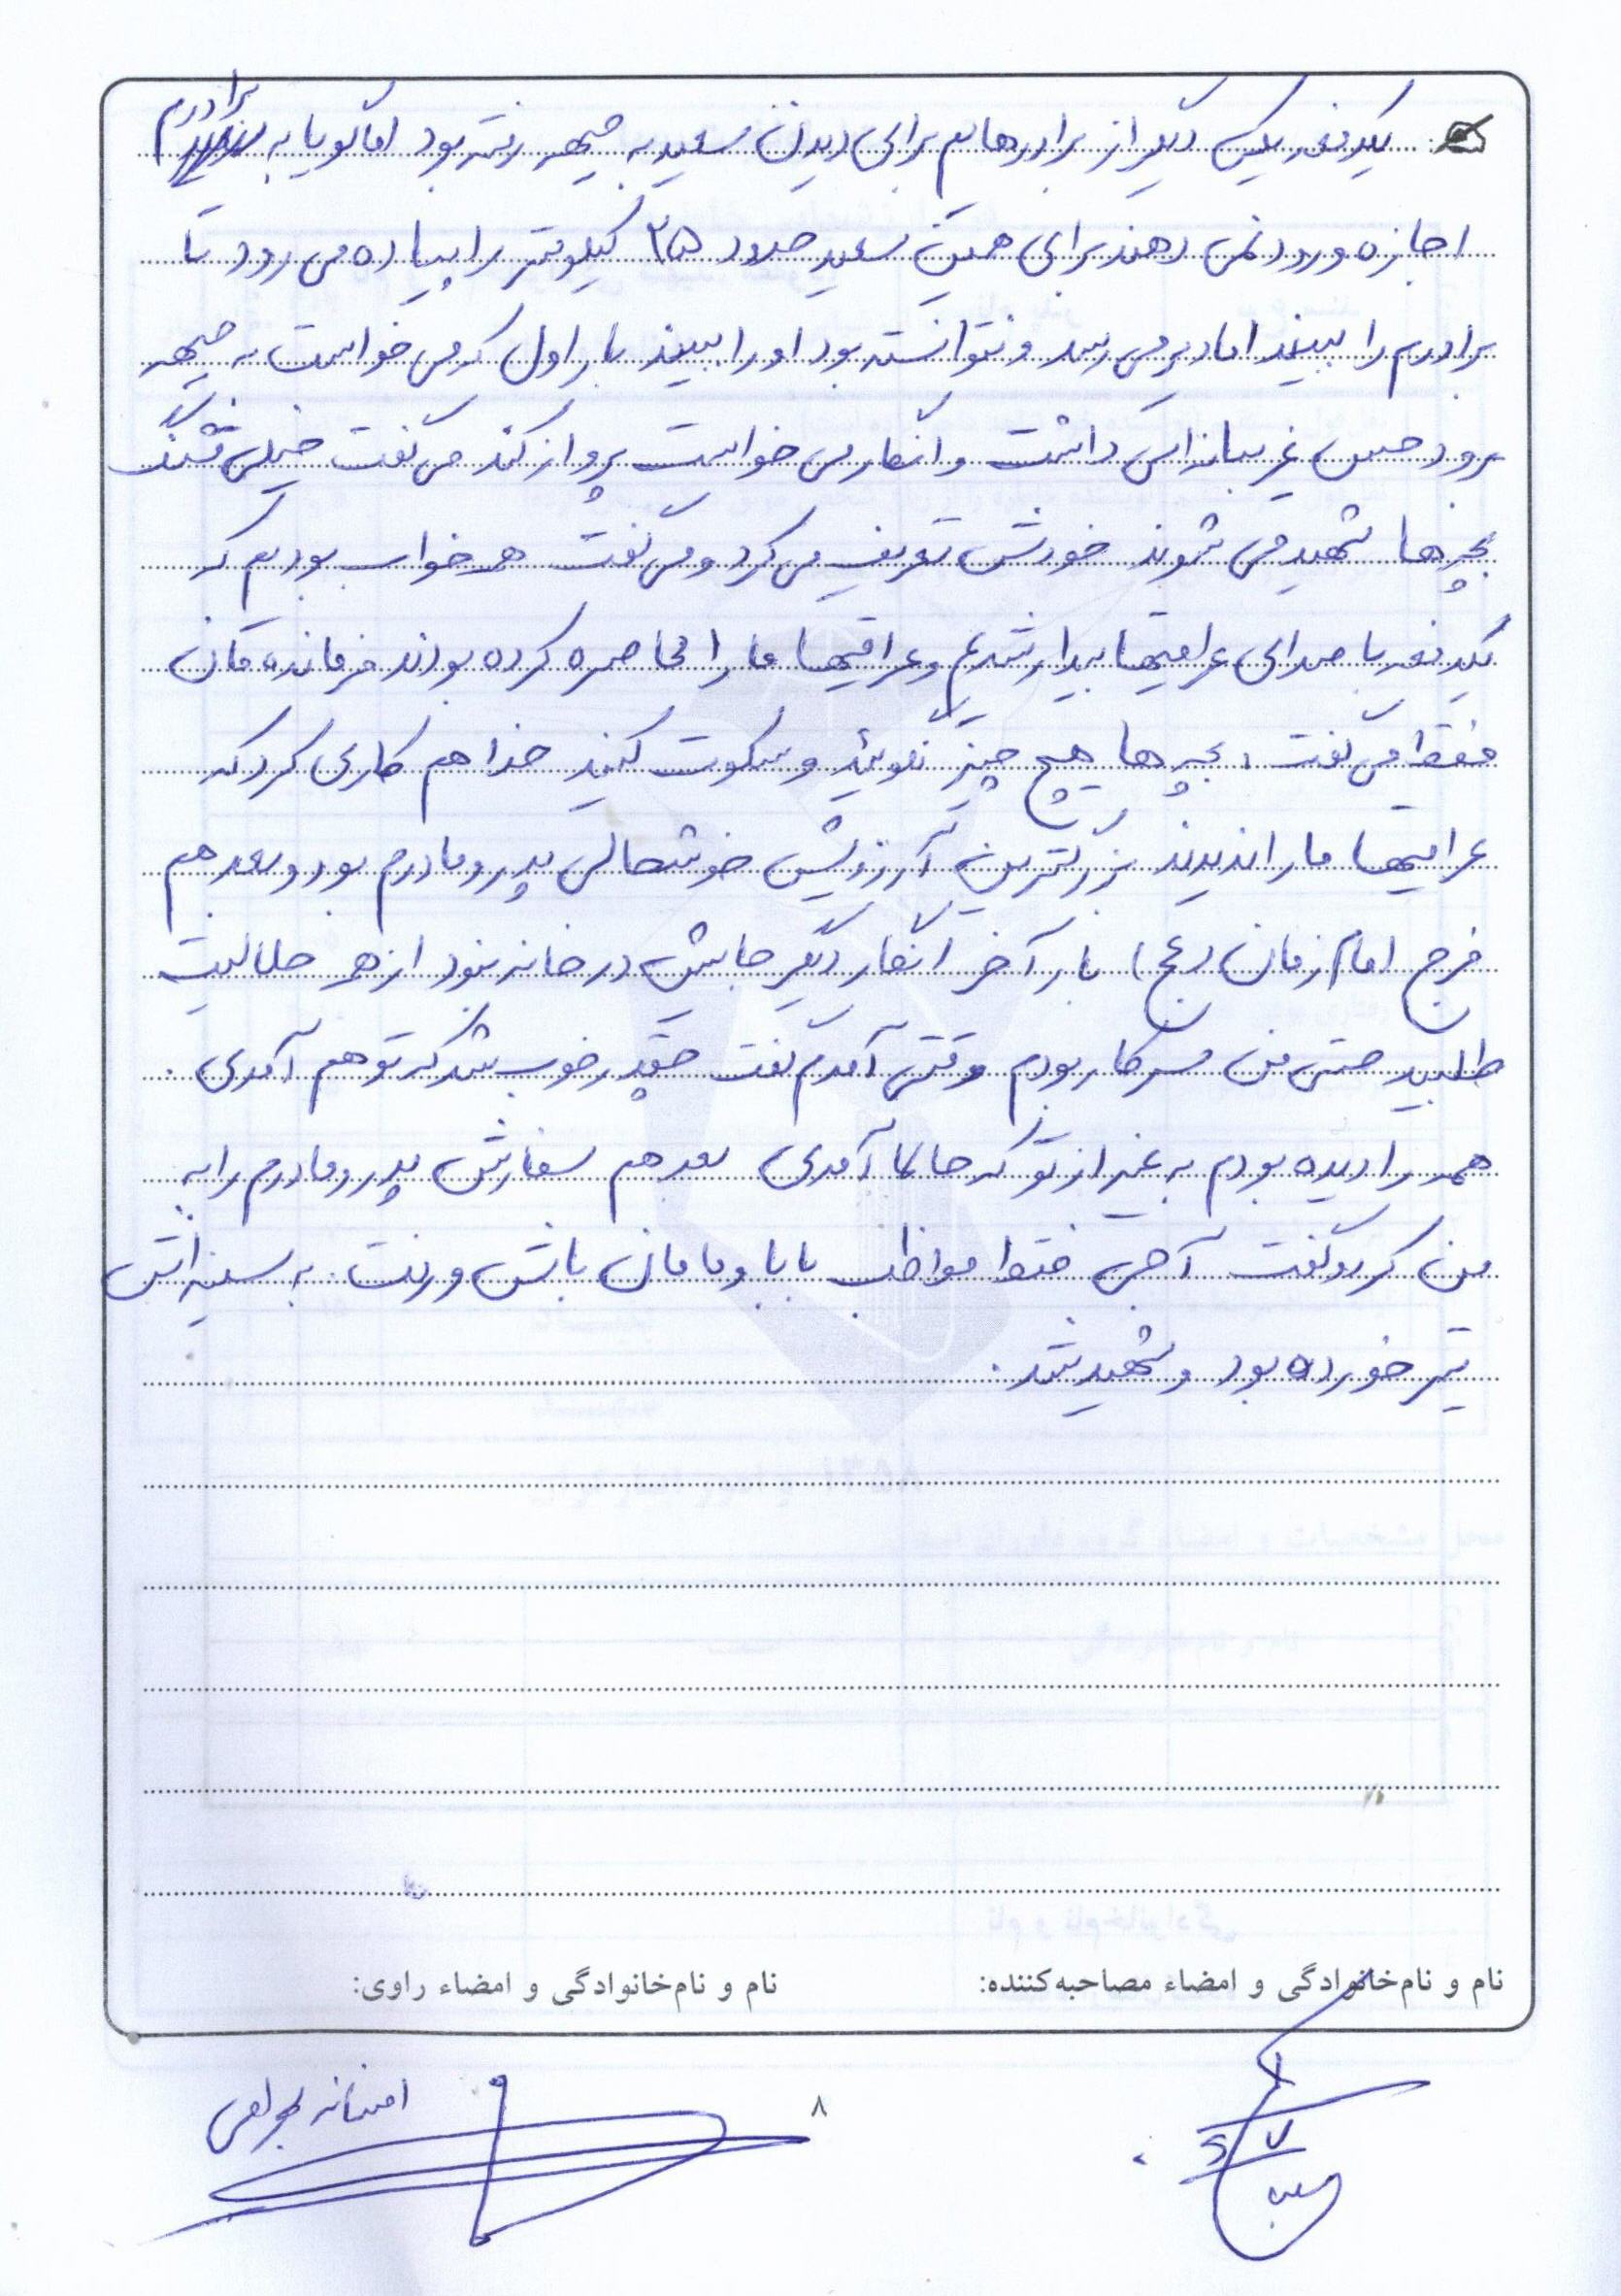 یکدفعه یکی دیگر از برادرهایم برای دیدن سعید به جبهه رفته بود اما گویا به برادرم
اجازه ورود نمی دهند برای همین سعید حدود ۳۵ کیلومتر را پیاده می رود تا
برادرم را ببیند اما دیر می رسد و نتوانسته بود او را ببیند بار اول که می خواست به جبهه
برود حس غریبانه‌ای داشت و انگار می خواست پرواز کند می گفت خیلی قشنگ
بچه ها شهید می شوند خودش تعریف می کرد و می گفت همه خواب بودیم که
یکدفعه با صدای عراقیها بیدار شدیم و عراقیها ما را محاصره کرده بودند فرمانده مان
فقط می گفت: بچه ها هیچ چیز نگوئید و سکوت کنید خدا هم کاری کرد که
عراقیها ما را ندیدند بزرگترین آرزویش خوشحالی پدر و مادرم بود و بعد هم
فرج امام زمان (عج) بار آخر انگار دیگر جایش در خانه نبود از همه حلالیت
طلبید حتی من سر کار بودم وقتی آمدم گفت چقدر خوب شد که تو هم آمدی.
همه را دیده بودم به غیر از تو که حالا آمدی بعد هم سفارش پدر و مادرم را به
من کرد و گفت آجی فقط مواظب بابا و مامان باش و رفت. به سینه‌اش
تیر خورده بود و شهید شد.
نام و نام‌خانوادگی و امضاء مصاحبه‌کننده: نام و نام‌خانوادگی و امضاء راوی:
۸